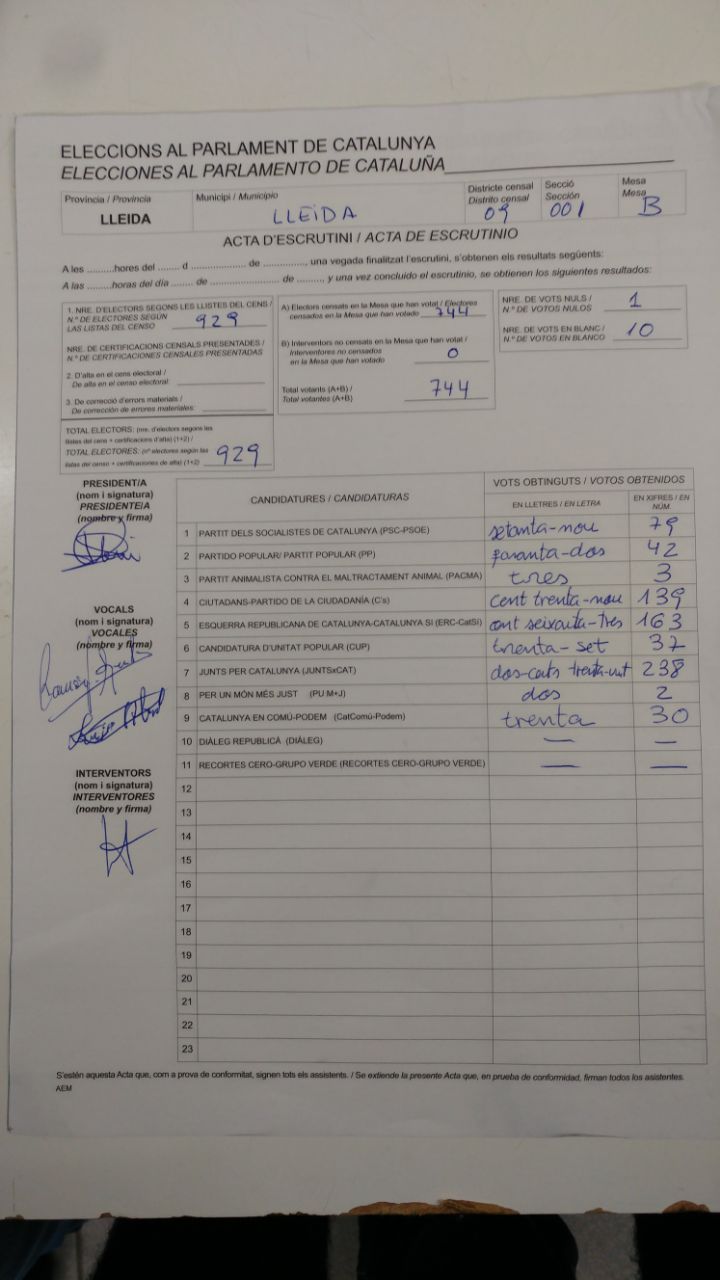 ELECCIONS AL PARLAMENT DE CATALUNYA
ELECCIONES AL PARLAMENTO DE CATALUÑA
Província / Provincia
LLEIDA
Municipi / Municipio
LLEIDA
Districte censal
Distrito censal
09
Secció
Sección
001
Mesa
Mesa
B
ACTA D'ESCRUTINI / ACTA DE ESCRUTINIO
A les ..........hores del ....... d ..................... de ............., una vegada finalitzat l'escrutini, s'obtenen els resultats següents:
A las .........horas del día ....... de ..................... de ............, y una vez concluido el escrutinio, se obtienen los siguientes resultados:
1. NRE. D'ELECTORS SEGONS LES LLISTES DEL CENS /
N.º DE ELECTORES SEGÚN
LAS LISTAS DEL CENSO
929
NRE. DE CERTIFICACIONS CENSALS PRESENTADES /
N.º DE CERTIFICACIONES CENSALES PRESENTADAS
2. D'alta en el cens electoral /
De alta en el censo electoral:
3. De correcció d'errors materials /
De corrección de errores materiales:
TOTAL ELECTORS: (nre. d'electors segons les
llistes del cens + certificacions d'alta) (1+2) /
TOTAL ELECTORES: (nº electores según las
listas del censo + certificaciones de alta) (1+2)
929
A) Electors censats en la Mesa que han votat / Electores
censados en la Mesa que han votado
744
B) Interventors no censats en la Mesa que han votat /
Interventores no censados
en la Mesa que han votado
0
Total votants (A+B) /
Total votantes (A+B)
744
NRE. DE VOTS NULS /
N.º DE VOTOS NULOS
1
NRE. DE VOTS EN BLANC /
N.º DE VOTOS EN BLANCO
10
PRESIDENT/A
(nom i signatura)
PRESIDENTE/A
(nombre y firma)
VOCALS
(nom i signatura)
VOCALES
(nombre y firma)
INTERVENTORS
(nom i signatura)
INTERVENTORES
(nombre y firma)
CANDIDATURES / CANDIDATURAS
VOTS OBTINGUTS / VOTOS OBTENIDOS
EN LLETRES / EN LETRA
EN XIFRES / EN
NÚM.
1 PARTIT DELS SOCIALISTES DE CATALUNYA (PSC-PSOE) setanta-nou 79
2 PARTIDO POPULAR/ PARTIT POPULAR (PP) quaranta-dos 42
3 PARTIT ANIMALISTA CONTRA EL MALTRACTAMENT ANIMAL (PACMA) tres 3
4 CIUTADANS-PARTIDO DE LA CIUDADANÍA (C's) cent trenta-nou 139
5 ESQUERRA REPUBLICANA DE CATALUNYA-CATALUNYA SÍ (ERC-CatSí) cent seixanta-tres 163
6 CANDIDATURA D'UNITAT POPULAR (CUP) trenta-set 37
7 JUNTS PER CATALUNYA (JUNTSxCAT) dos-cents trenta-vuit 238
8 PER UN MÓN MÉS JUST (PU M+J) dos 2
9 CATALUNYA EN COMÚ-PODEM (CatComú-Podem) trenta 30
10 DIÀLEG REPUBLICÀ (DIÀLEG) — —
11 RECORTES CERO-GRUPO VERDE (RECORTES CERO-GRUPO VERDE) — —
12
13
14
15
16
17
18
19
20
21
22
23
S'estén aquesta Acta que, com a prova de conformitat, signen tots els assistents. / Se extiende la presente Acta que, en prueba de conformidad, firman todos los asistentes.
AEM